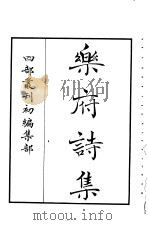 樂府詩集
四部叢刊初編集部
mtoou.info